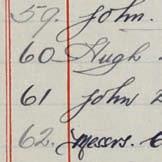 59. John.
60 Hugh
61 John
62. Messrs.